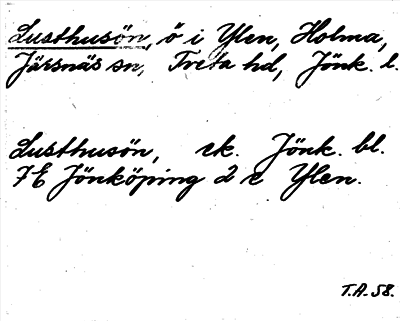 Lusthusön, ö i Ylen, Holma,
Järsnäs sn, Tveta hd, Jönk. l.
Lusthusön, ek. Jönk. bl.
7E Jönköping 2 e Ylen.
T.A. 58.